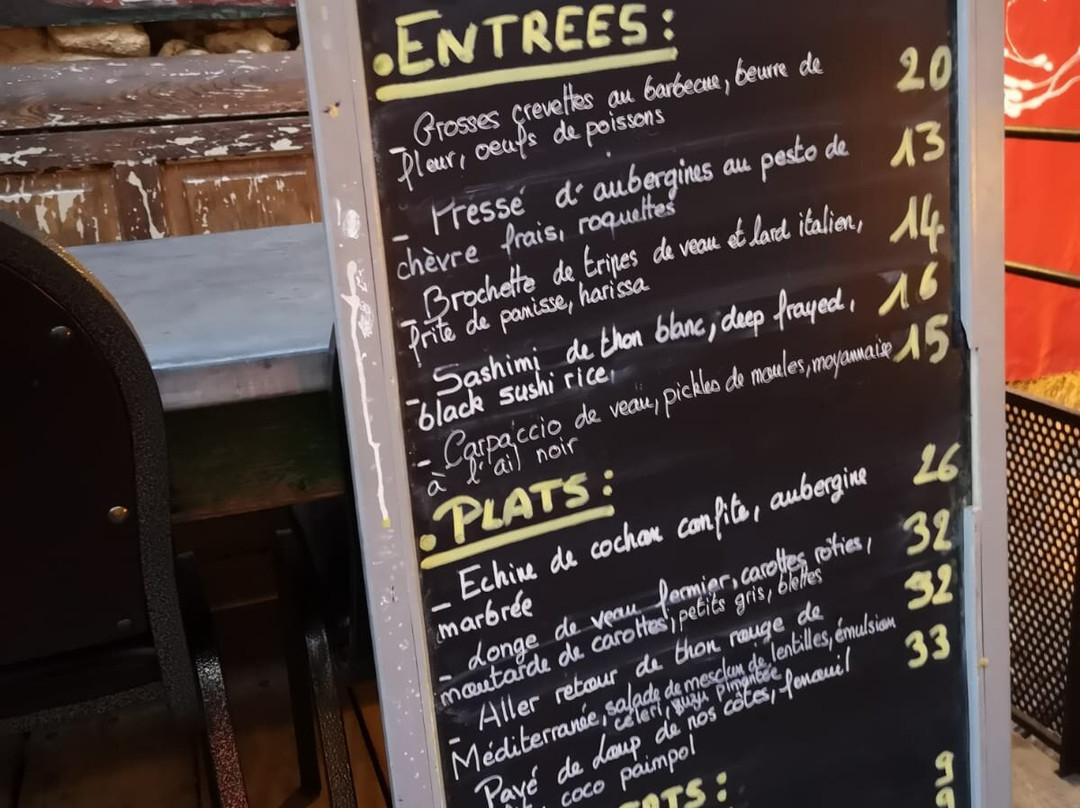 • ENTREES :
- Grosses crevettes au barbecue, beurre de 20
fleur, oeufs de poissons
- Pressé d'aubergines au pesto de 13
chèvre frais, roquettes
- Brochette de tripes de veau et lard italien, 14
frite de panisse, harissa
- Sashimi de thon blanc, deep frayed, 16
black sushi rice,
- Carpaccio de veau, pickles de moules, moyannaise 15
à l'ail noir
• PLATS :
- Echine de cochon confite, aubergine 26
marbrée
- Longe de veau fermier, carottes rôties, 32
moutarde de carottes, petits gris, blettes
- Aller retour de thon rouge de 32
Méditerranée, salade de mesclun de lentilles, émulsion
céleri, yuzu pimentée
Pavé de Loup de nos côtes, fenouil 33
coco paimpol
RTS : 9
9